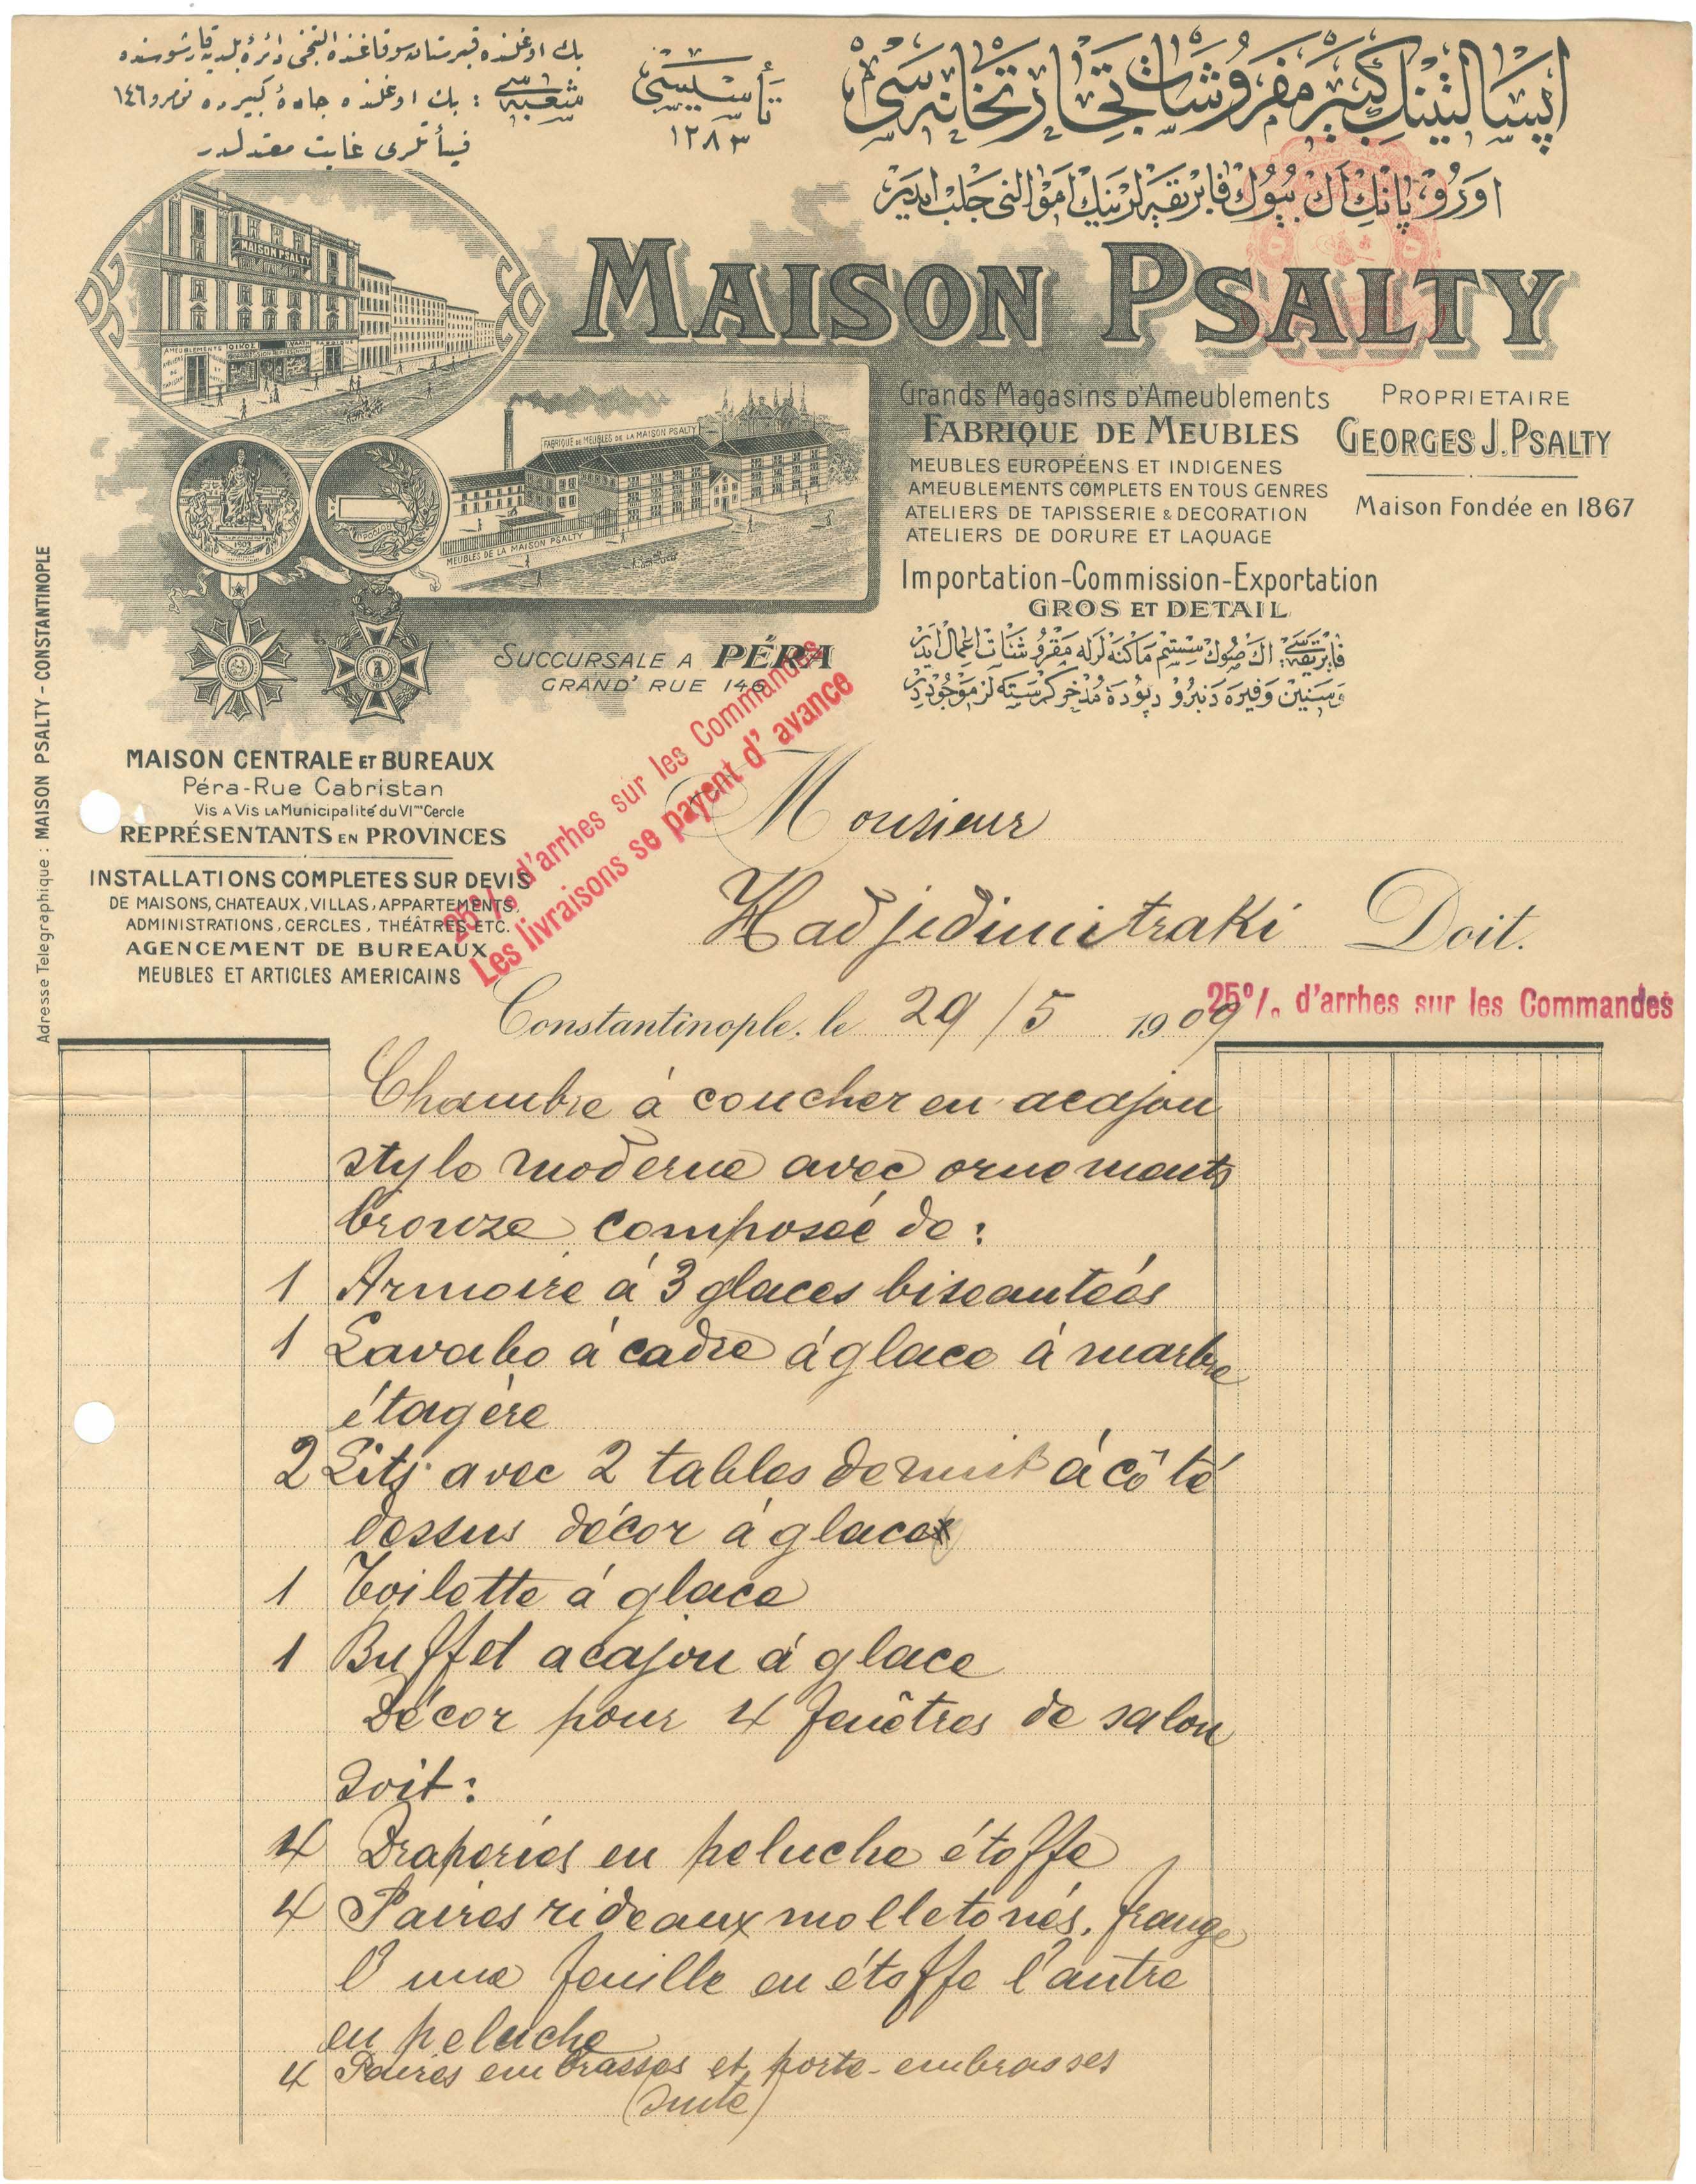 بك اوغلنده قبرستان سوقاغنده التنجی دائرهٔ بلدیه قارشوسنده
شعبه سی : بك اوغلنده جادهٔ كبیرده نومرو ١٤٦
فیأتلری غایت معتدلدر
تأسیسی
١٢٨٣
اپسالتینك كبیر مفروشات تجارتخانه سی
اوروپانك اك بیوك فابریقه لرینك اموالنی جلب ایدر
MAISON PSALTY
MAISON PSALTY
AMEUBLEMENTS
FABRIQUE DE MEUBLES DE LA MAISON PSALTY
MEUBLES DE LA MAISON PSALTY
Grands Magasins D'Ameublements
FABRIQUE DE MEUBLES
MEUBLES EUROPÉENS ET INDIGENES
AMEUBLEMENTS COMPLETS EN TOUS GENRES
ATELIERS DE TAPISSERIE & DECORATION
ATELIERS DE DORURE ET LAQUAGE
Importation-Commission-Exportation
GROS ET DETAIL
PROPRIETAIRE
GEORGES J. PSALTY
Maison Fondée en 1867
فابریقه سی: اك صوك سیستم ماكنه لرله مفروشات اعمال ایدر
وسنین وفیره دنبرو دپوده مدخر كرسته لر موجوددر
SUCCURSALE A PÉRA
GRAND' RUE 146
MAISON CENTRALE ET BUREAUX
Péra-Rue Cabristan
Vis A Vis LA Municipalité du VIme Cercle
REPRÉSENTANTS EN PROVINCES
INSTALLATIONS COMPLETES SUR DEVIS
DE MAISONS, CHATEAUX, VILLAS, APPARTEMENTS,
ADMINISTRATIONS, CERCLES, THÉÂTRES ETC.
AGENCEMENT DE BUREAUX
MEUBLES ET ARTICLES AMERICAINS
Adresse Telegraphique : MAISON PSALTY - CONSTANTINOPLE
25% d'arrhes sur les Commandes
Les livraisons se payent d'avance
Monsieur
Hadjidimitraki Doit.
Constantinople, le 29/5 1909
25% d'arrhes sur les Commandes
Chambre à coucher en acajou
style moderne avec ornements
bronze composée de :
1 Armoire à 3 glaces biseautées
1 Lavabo à cadre à glace à marbre
étagère
2 Lits avec 2 tables de nuit à côté
dessus décor à glace
1 Toilette à glace
1 Buffet acajou à glace
Décor pour 4 fenêtres de salon
soit :
4 Draperies en peluche étoffe
4 Paires rideaux molletonés, frange
l'une feuille en étoffe l'autre
en peluche
4 Paires embrasses et porte-embrasses
(suite)